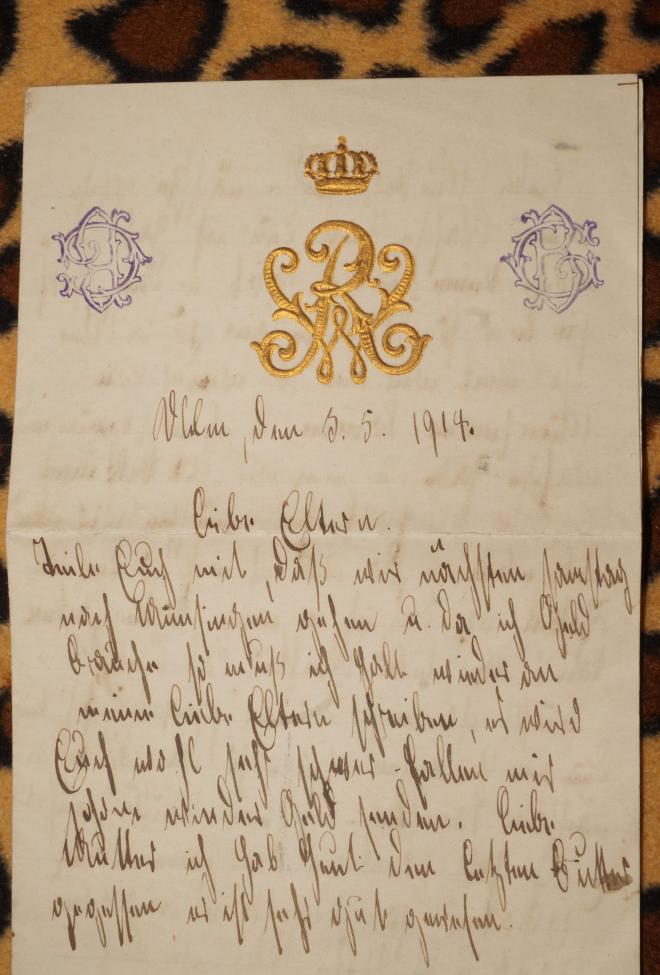 Ulm, den 5. 5. 1914.
Liebe Eltern.
Teile Euch mit, daß wir nächsten samstag
nach Münsingen gehen u. da ich Geld
brauche so muß ich halt wieder an
meine liebe Eltern schreiben, es wird
Euch wohl sehr schwer fallen mir
schon wieder Geld senden. Liebe
Mutter ich hab heut den letzten Butter
gegessen es ist sehr gut gewesen.